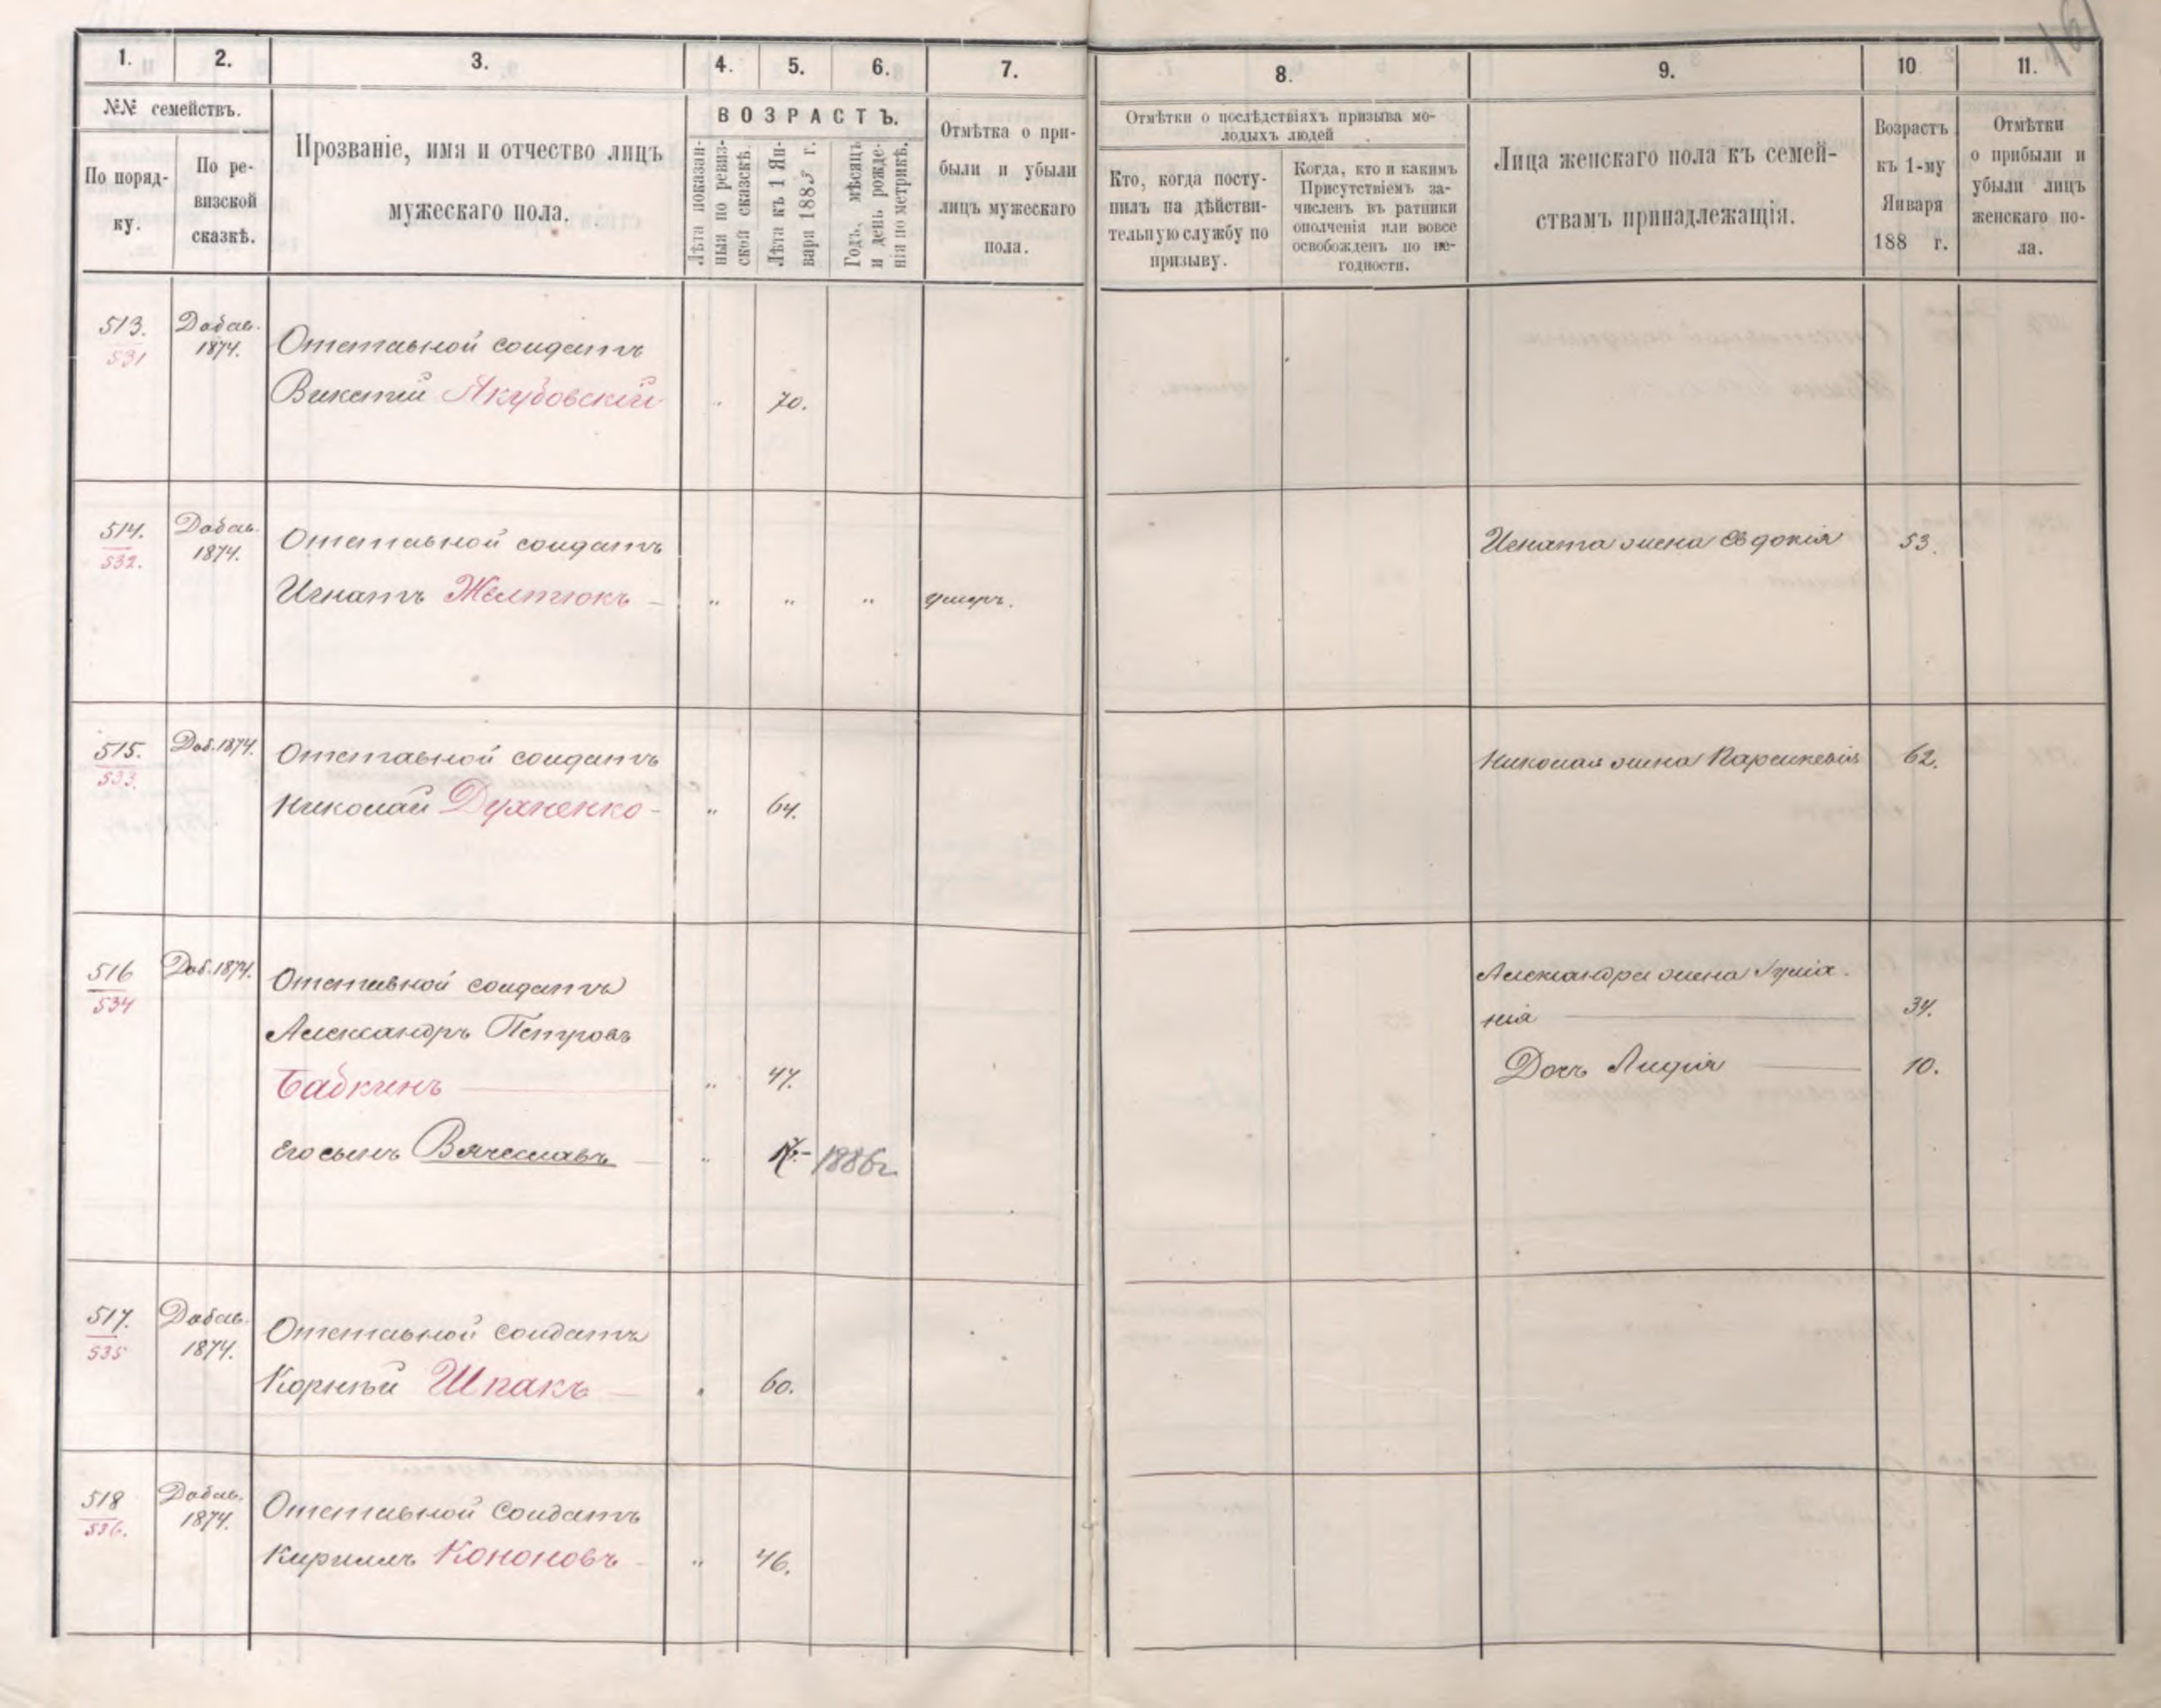 1.
2.
3.
4.
5.
6.
7.
8.
9.
10
11.
№№ семействъ.
По поряд-
ку.
По ре-
визской
сказкѣ.
Прозваніе, имя и отчество лицъ
мужескаго пола.
ВОЗРАСТЪ.
Лѣта показан-
ныя по ревиз-
ской сказкѣ.
Лѣта къ 1 Ян-
варя 1885 г.
Годъ, мѣсяцъ
и день рожде-
нія по метрикѣ.
Отмѣтка о при-
были и убыли
лицъ мужескаго
пола.
Отмѣтки о послѣдствіяхъ призыва мо-
лодыхъ людей
Кто, когда посту-
пилъ на дѣйстви-
тельную службу по
призыву.
Когда, кто и какимъ
Присутствіемъ за-
численъ въ ратники
ополченія или вовсе
освобожденъ по не-
годности.
Лица женскаго пола къ семей-
ствамъ принадлежащія.
Возрастъ
къ 1-му
Января
188 г.
Отмѣтки
о прибыли и
убыли лицъ
женскаго по-
ла.
513.
531
Добав.
1874.
Отставной солдатъ
Викетій Якубовскій " 70.
514.
532.
Добав.
1874.
Отставной солдатъ
Игнатъ Желтюкъ " " " умеръ.
Игната жена Евдокія 53.
515.
533.
Доб. 1874.
Отставной солдатъ
Николай Духненко " 64.
Николая жена Параскевія 62.
516
534
Доб. 1874.
Отставной солдатъ
Александръ Петровъ
Бабкинъ " 47.
Его сынъ Вячеславъ " 1886г.
Александра жена Іуліа-
нія 34.
Дочь Лидія 10.
517.
535
Добав.
1874.
Отставной солдатъ
Корнѣй Шпакъ " 60.
518
536.
Добав.
1874.
Отставной Солдатъ
Кирилъ Кононовъ " 46.